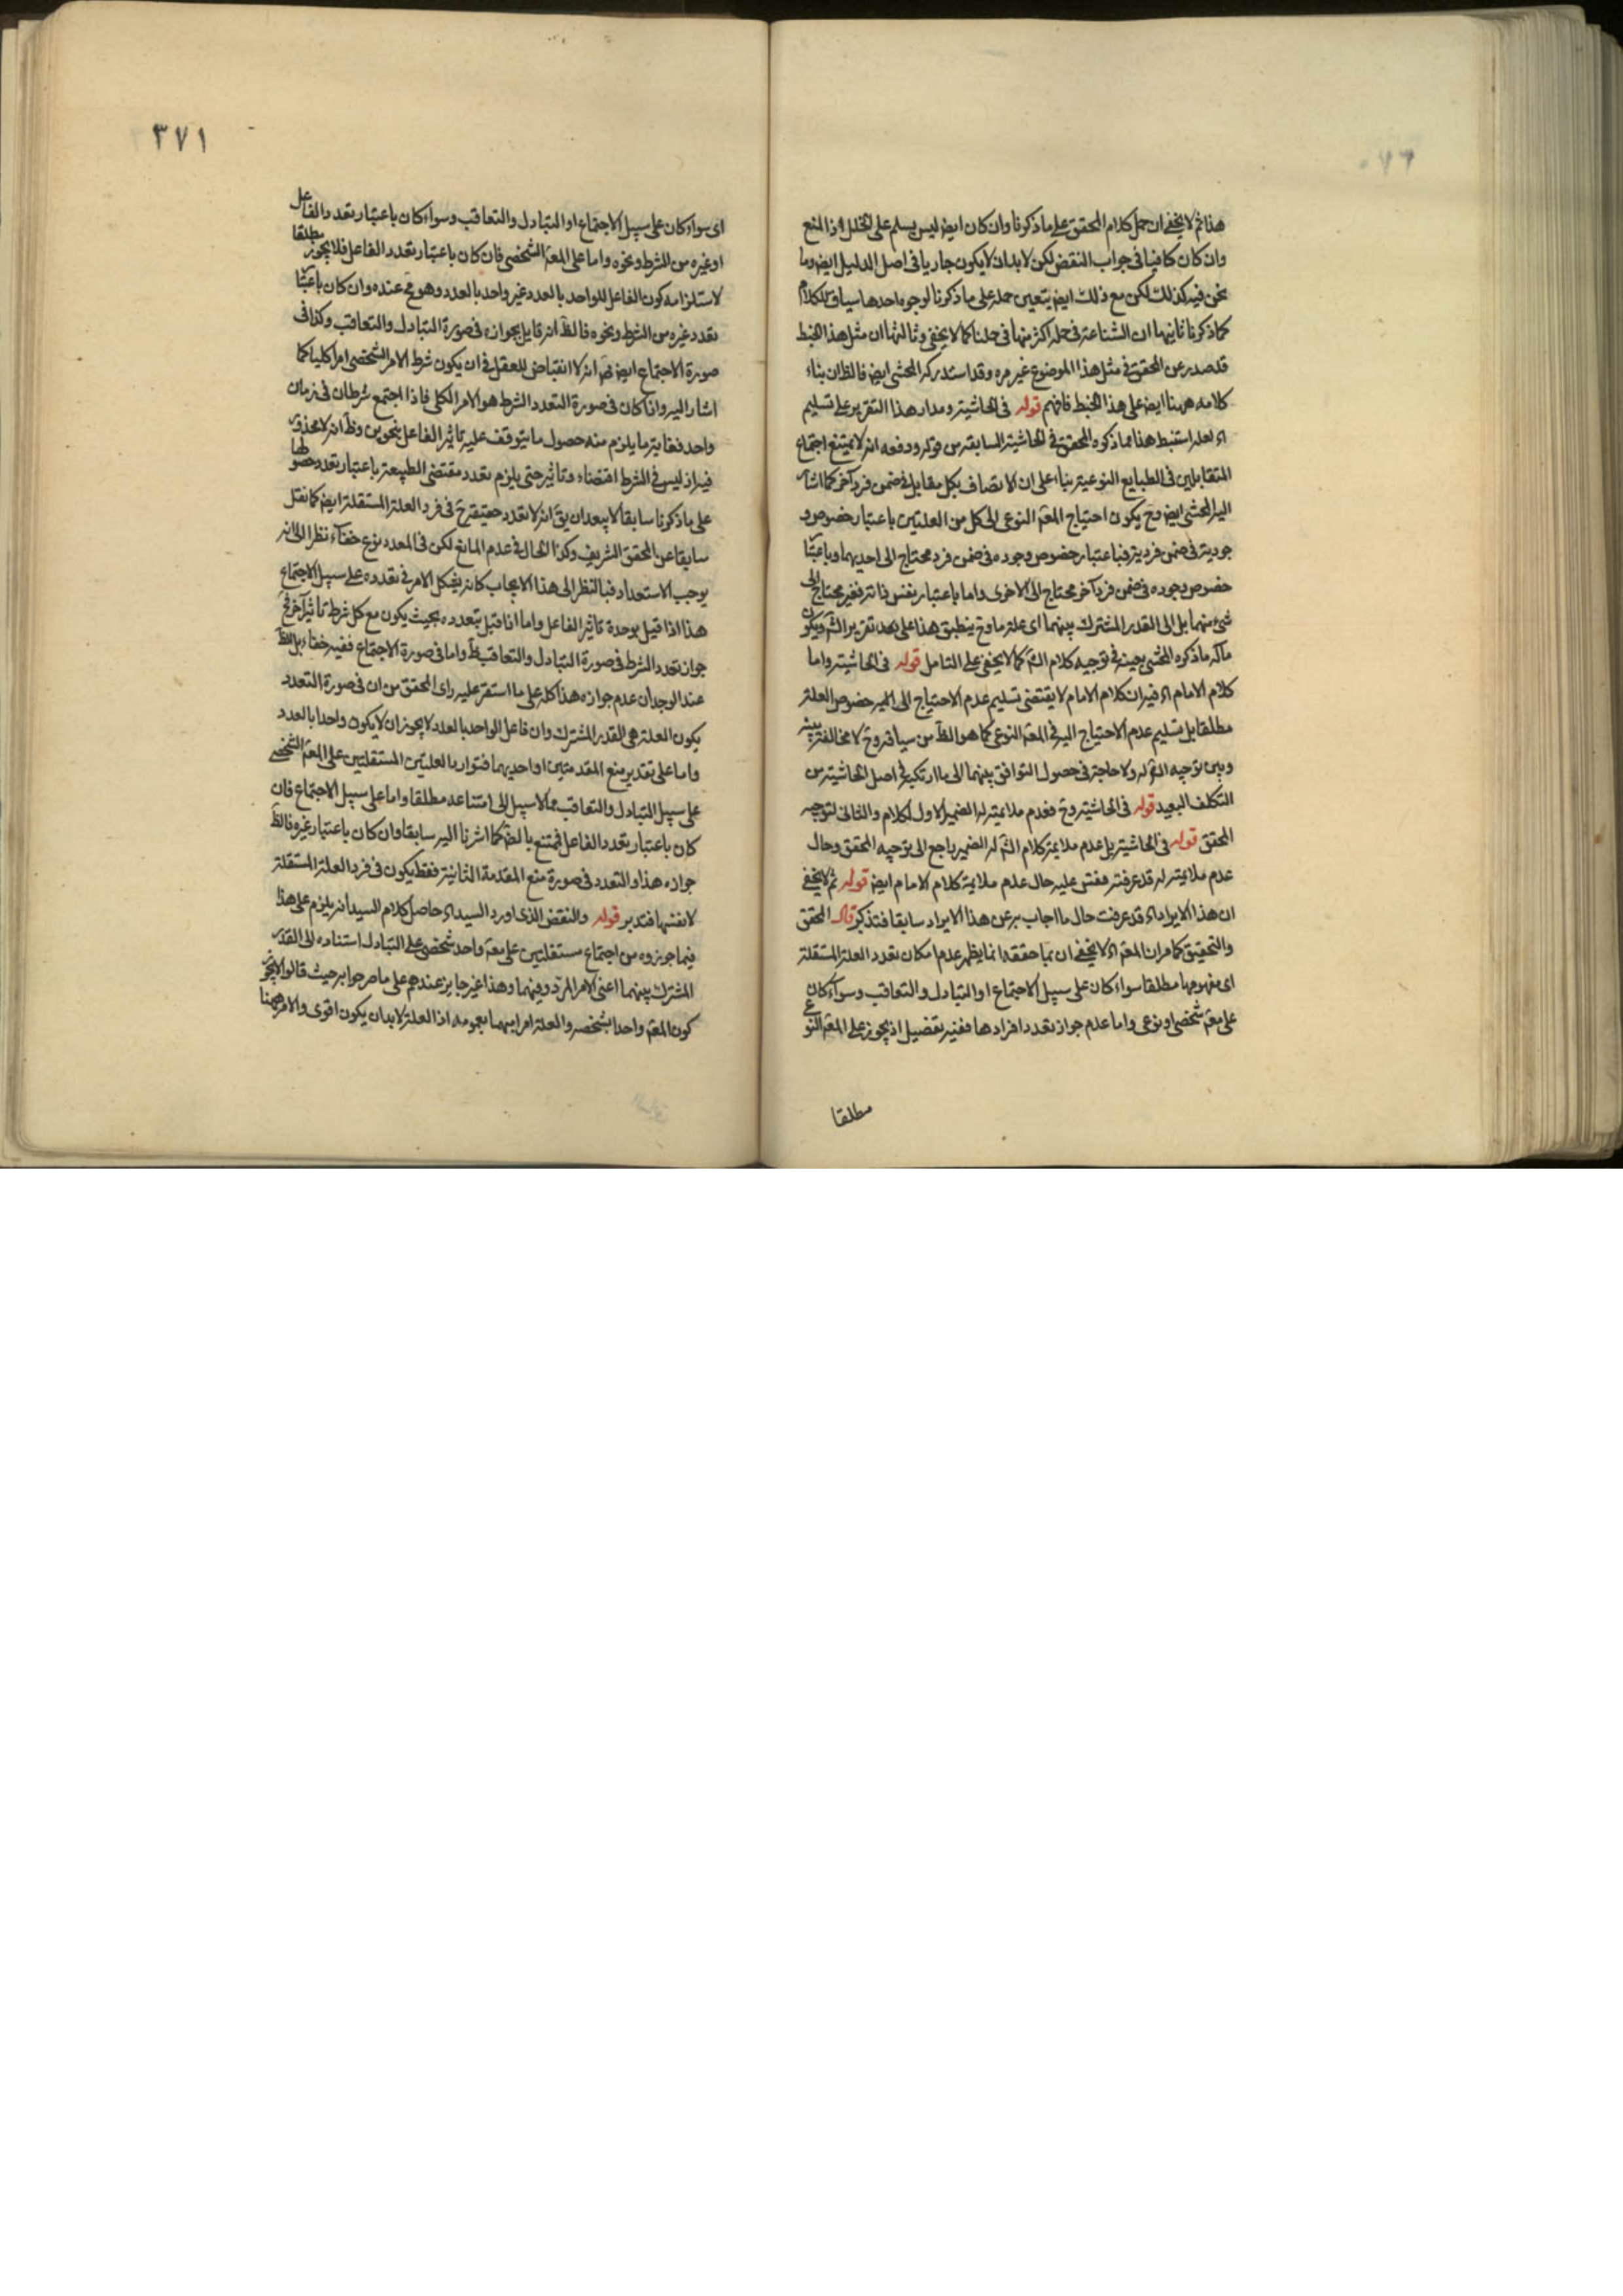 هذا ثم لا يخفى ان حمل كلام المحقق على ما ذكرنا وان كان ايض ليس يسلم على الخلل اذ المنع
وان كان كافيا فى جواب النقض لكن لا بد ان لا يكون جاريا فى اصل الدليل ايض وما
نحن فيه كذلك لكن مع ذلك ايض يتعين حمله على ما ذكرنا لوجوه احدها سياق الكلام
كما ذكرنا ثانيها ان الشناعة فى حمله اكثر منها فى حملنا كما لا يخفى وثالثها ان مثل هذا الخبط
قد صدر عن المحقق فى مثل هذا الموضوع غير مره وقد استدركه المحشى ايض فالظ ان بناء
كلامه ههنا ايض على هذا الخبط فافهم قوله فى الحاشيه ومدار هذا التقرير على تسليم
اه لعله استنبط هذا مما ذكره المحقق فى الحاشية السابقه من قوله ودفعه انه لا يمتنع اجتماع
المتقابلين فى الطبايع النوعية بناء على ان الاتصاف بكل مقابل فى ضمن فرد آخر كما اشار
اليه المحشى ايض وح يكون احتياج المعة النوعى الى كل من العلتين باعتبار خصوص و
جوديته فى ضمن فرديته فباعتبار خصوص وجوده فى ضمن فرد محتاج الى احديهما وباعتبا
خصوص وجوده فى ضمن فرد آخر محتاج الى الاخرى واما باعتبار نفس ذاته فغير محتاج الى
شىء منهما بل الى القدر المشترك بينهما اى علة ما وح ينطبق هذا على بعد تقرير الشه ويكون
مآله ما ذكره المحشى بعينه فى توجيه كلام الشه كما لا يخفى على التامل قوله فى الحاشيه واما
كلام الامام اه فيه ان كلام الامام لا يقتضى تسليم عدم الاحتياج الى خصوص العلة
مطلقا بل تسليم عدم الاحتياج اليه فى المعة النوعى كما هو الظ من سياقه وح لا مخالفة بينه
وبين توجيه الشه له ولا حاجة فى حصول التوافق بينهما الى ما ارتكبه فى اصل الحاشيه من
التكلف البعيد قوله فى الحاشيه وح فعدم ملايمته له الضمير الاول لكلام والثانى لتوجيه
المحقق قوله فى الحاشيه بل عدم ملايمة كلام الشه له الضمير راجع الى توجيه المحقق وحال
عدم ملايمته له قد عرفته فقس عليه حال عدم ملايمة كلام الامام ايض قوله ثم لا يخفى
ان هذا الايراد اه قد عرفت حال ما اجاب به عن هذا الايراد سابقا فتذكر قال المحقق
والتحقيق كما مر ان المعة اه لا يخفى ان بما حققه انما يظهر عدم امكان تعدد العلة المستقلة
اى مفهومها مطلقا سواء كان على سبيل الاجتماع او التبادل والتعاقب وسواء كان
على معة شخصى او نوعى واما عدم جواز تعدد افرادها ففيه تفضيل اذ يجوز على المعة النوعى
مطلقا
٣٧١
اى سواء كان على سبيل الاجتماع او التبادل والتعاقب وسواء كان باعتبار تعدد الفاعل
او غيره من الشرط ونحوه واما على المعة الشخصى فان كان باعتبار تعدد الفاعل فلا يجوز مطلقا
لاستلزامه كون الفاعل للواحد بالعدد غير واحد بالعدد وهو مح عنده وان كان باعتبا
تعدد غيره من الشرط ونحوه فالظ انه قايل بجوازه فى صورة التبادل والتعاقب وكذا فى
صورة الاجتماع ايض انه لا انقباض للعقل فى ان يكون شرط الامر الشخصى امرا كليا كما
اشار اليه واذا كان فى صورة التعدد الشرط هو الامر الكلى فاذا اجتمع شرطان فى زمان
واحد فغاية ما يلزم منه حصول ما يتوقف عليه تاثير الفاعل بنحوين وظ انه لا محذور
فيه اذ ليس فى الشرط اقتضاء وتاثير حتى يلزم تعدد مقتضى الطبيعة باعتبار تعدد حصولها
على ما ذكرنا سابقا لا يبعد ان يق انه لا تعدد حقيقة ح فى فرد العلة المستقلة ايض كما نقل
سابقا عن المحقق الشريف وكذا الحال فى عدم المانع لكن فى المعدد نوع خفاء نظرا الى انه
يوجب الاستعداد فبالنظر الى هذا الايجاب كانه يشكل الامر فى تعدده على سبيل الاجتماع
هذا اذا قيل بوحدة تاثير الفاعل واما اذا قيل بتعدده بحيث يكون مع كل شرط تاثير آخر فح
جواز تعدد الشرط فى صورة التبادل والتعاقب ظ واما فى صورة الاجتماع ففيه خفاء بل الظ
عند الوجدان عدم جوازه هذا كله على ما استقر عليه راى المحقق من ان فى صورة التعدد
يكون العلة هى القدر المشترك وان فاعل الواحد بالعدد لا يجوز ان لا يكون واحدا بالعدد
واما على تقدير منع المقدمتين او احديهما فتوارد العلتين المستقلتين على المعة الشخصى
على سبيل التبادل والتعاقب مما لا سبيل الى امتناعه مطلقا واما على سبيل الاجتماع فان
كان باعتبار تعدد الفاعل فممتنع بالضه كما اشرنا اليه سابقا وان كان باعتبار غيره فالظ
جوازه هذا والتعدد فى صورة منع المقدمة الثانية فقط يكون فى فرد العلة المستقلة
لا نفسها فتدبر قوله والنقض الذى اورد السيد اه حاصل كلام السيد انه يلزم على هذا
فيما جوزوه من اجتماع مستقلتين على معة واحد شخصى على التبادل استناده الى القدر
المشترك بينهما اعنى الامر المردد فيهما وهذا غير جايز عندهم على ما صرحوا به حيث قالوا لا يجوز
كون المعة واحدا بشخصه والعلة امرا مبهما بعمومه اذ العلة لا بد ان يكون اقوى والامر ههنا